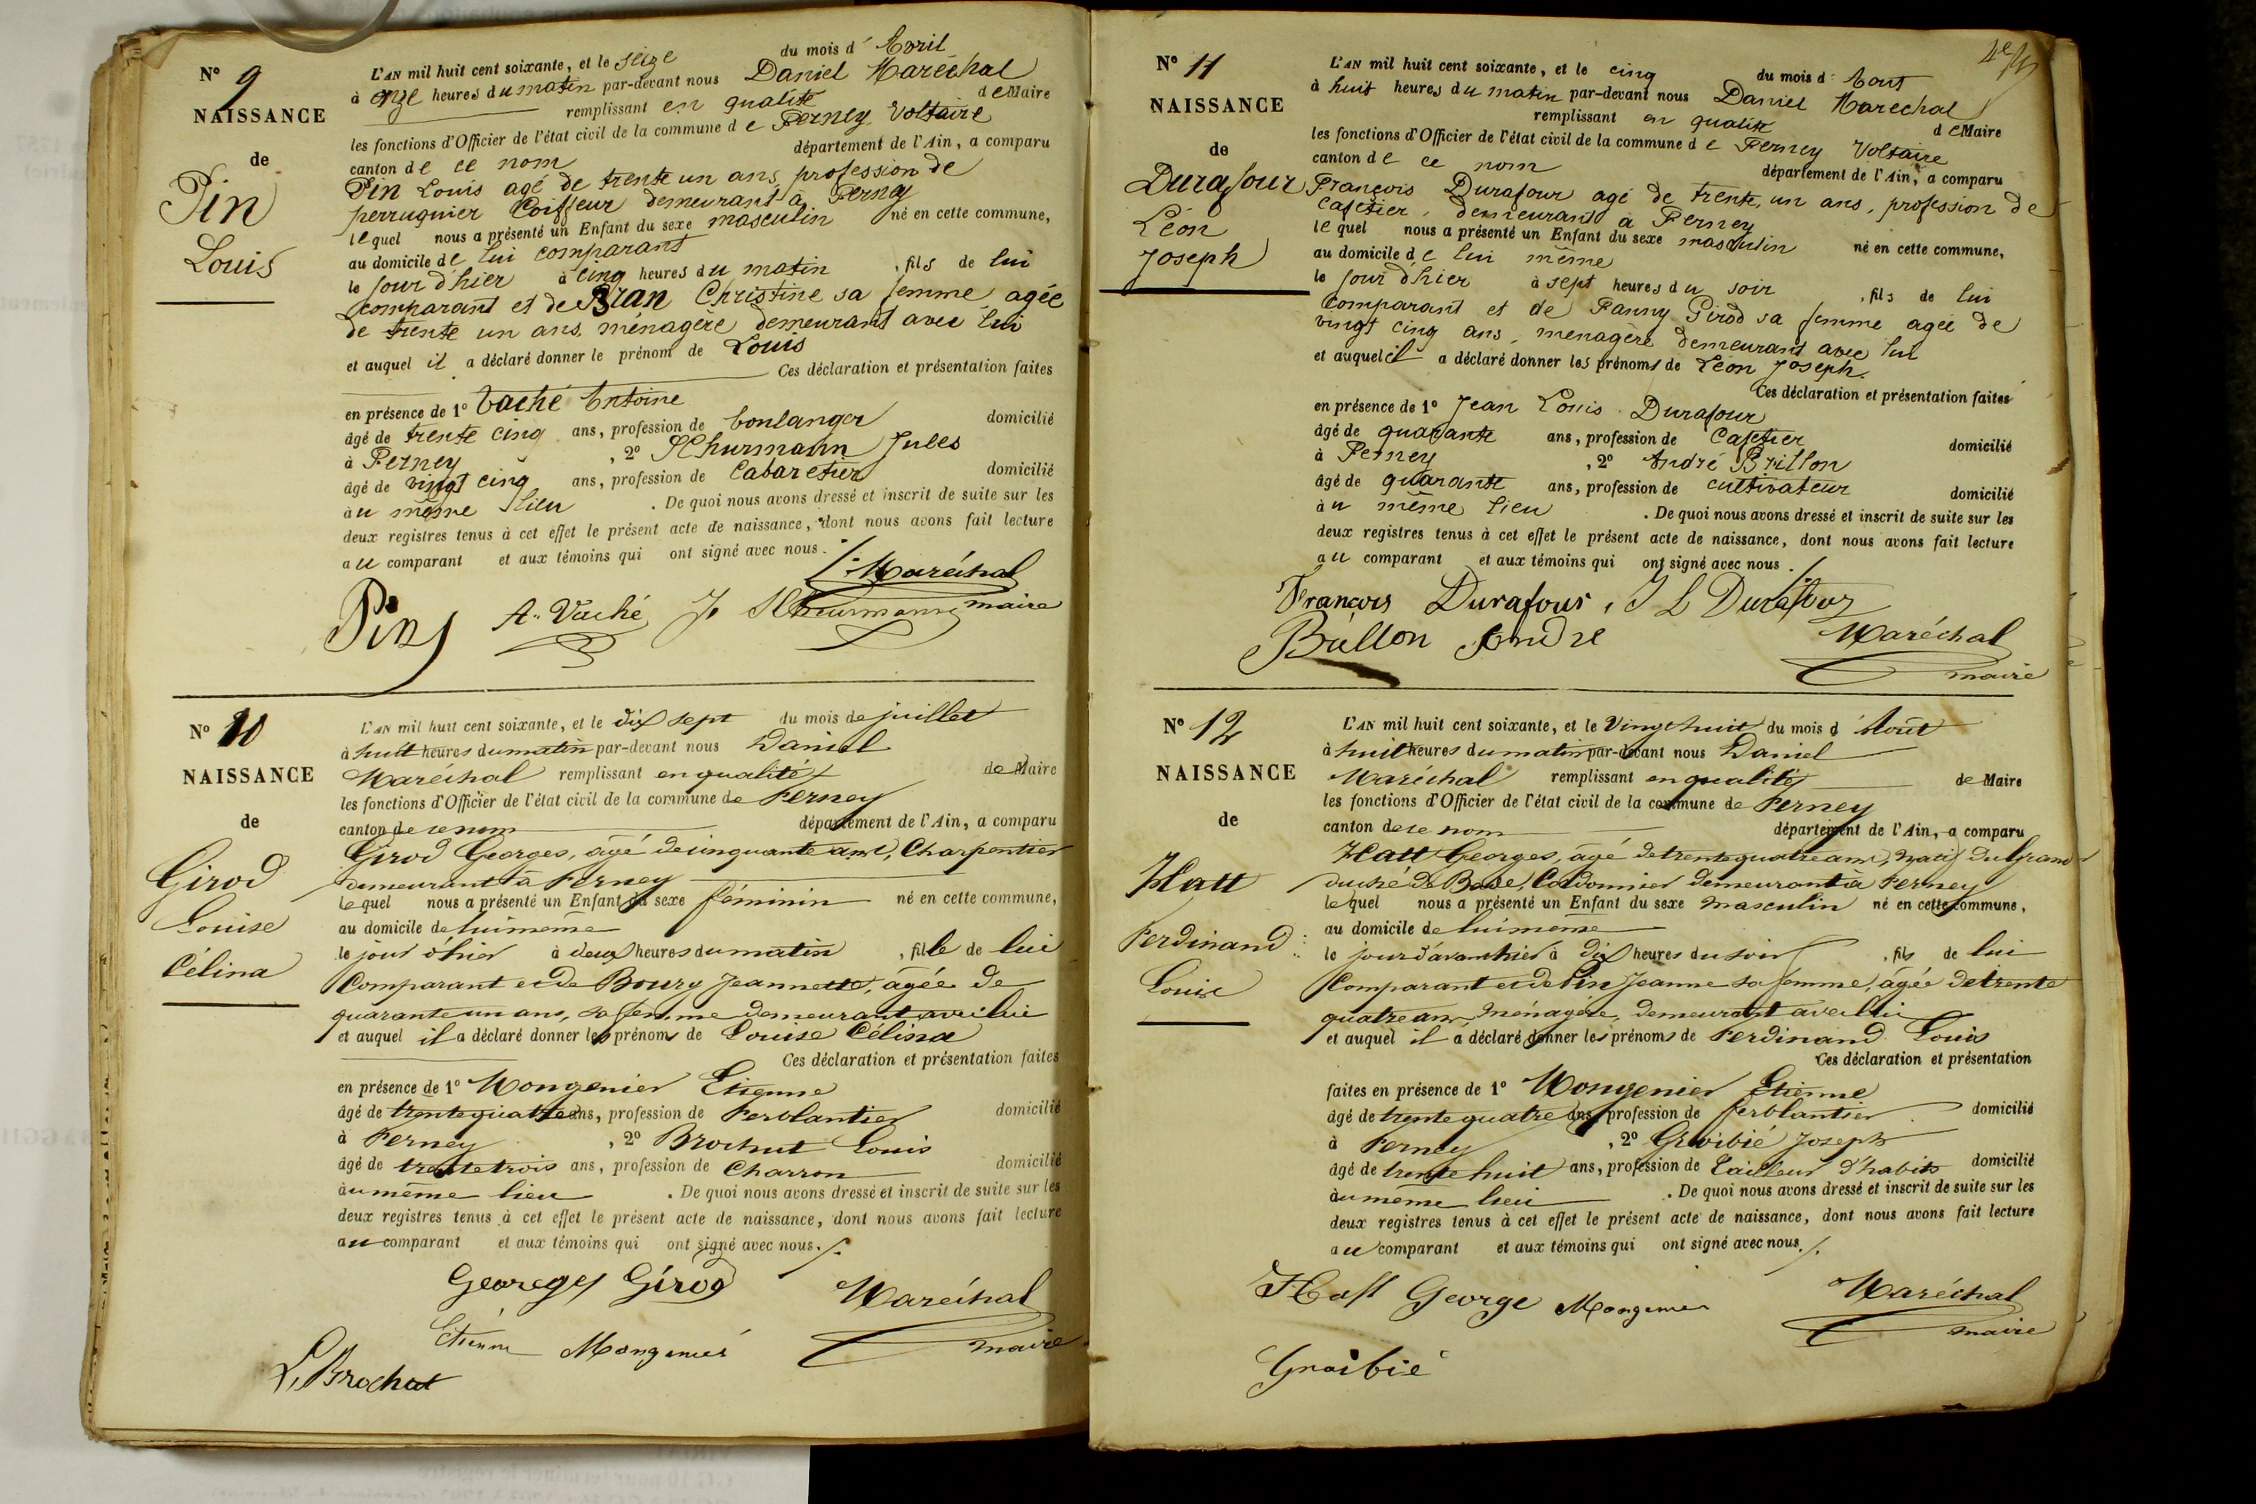 N° 9
NAISSANCE
de
Pin
Louis
L'AN mil huit cent soixante, et le seize du mois d'Avril
à onze heures du matin par-devant nous Daniel Maréchal
remplissant en qualité de Maire
les fonctions d'Officier de l'état civil de la commune de Ferney Voltaire
canton de ce nom département de l'Ain, a comparu
Pin Louis agé de trente un ans, profession de
perruquier Coiffeur demeurant à Ferney
lequel nous a présenté un Enfant du sexe masculin né en cette commune,
au domicile de lui comparant
le jour d'hier à cinq heures du matin , fils de lui
comparant et de Bran Christine sa femme agée
de trente un ans, ménagère demeurant avec lui
et auquel il a déclaré donner le prénom de Louis
Ces déclaration et présentation faites
en présence de 1° Vaché Antoine
âgé de trente cinq ans, profession de boulanger domicilié
à Ferney , 2° Schurmann Jules
âgé de vingt cinq ans, profession de Cabaretier domicilié
au même lieu . De quoi nous avons dressé et inscrit de suite sur les
deux registres tenus à cet effet le présent acte de naissance, dont nous avons fait lecture
au comparant et aux témoins qui ont signé avec nous ./.
Maréchal
Pin A. Vaché J. Schurmann maire
N° 10
NAISSANCE
de
Girod
Louise
Célina
L'AN mil huit cent soixante, et le dix sept du mois de juillet
à huit heures du matin par-devant nous Daniel
Maréchal remplissant en qualité de Maire
les fonctions d'Officier de l'état civil de la commune de Ferney
canton de ce nom département de l'Ain, a comparu
Girod Georges, âgé de cinquante ans, Charpentier
demeurant à Ferney
lequel nous a présenté un Enfant du sexe féminin né en cette commune,
au domicile de lui même
le jour d'hier à deux heures du matin , fille de lui
Comparant et de Boury Jeannette, âgée de
quarante un ans, sa femme demeurant avec lui
et auquel il a déclaré donner les prénoms de Louise Célina
Ces déclaration et présentation faites
en présence de 1° Mongenier Etienne
âgé de trente quatre ans, profession de Ferblantier domicilié
à Ferney , 2° Brochut Louis
âgé de trente trois ans, profession de Charron domicilié
au même lieu . De quoi nous avons dressé et inscrit de suite sur les
deux registres tenus à cet effet le présent acte de naissance, dont nous avons fait lecture
au comparant et aux témoins qui ont signé avec nous ./.
Georges Girod Maréchal
Etienne Mongenier maire
L. Brochut
N° 11
NAISSANCE
de
Durafour
Léon
Joseph
L'AN mil huit cent soixante, et le cinq du mois d'Aout
à huit heures du matin par-devant nous Daniel Maréchal
remplissant en qualité de Maire
les fonctions d'Officier de l'état civil de la commune de Ferney Voltaire
canton de ce nom département de l'Ain, a comparu
François Durafour agé de trente un ans, profession de
Cafetier, demeurant à Ferney
lequel nous a présenté un Enfant du sexe masculin né en cette commune,
au domicile de lui même
le jour d'hier à sept heures du soir , fils de lui
comparant et de Fanny Girod sa femme agée de
vingt cinq ans, menagère demeurant avec lui
et auquel il a déclaré donner les prénoms de Léon Joseph.
Ces déclaration et présentation faites
en présence de 1° Jean Louis Durafour
âgé de quarante ans, profession de Cafetier domicilié
à Ferney , 2° André Brillon
âgé de quarante ans, profession de cultivateur domicilié
au même lieu . De quoi nous avons dressé et inscrit de suite sur les
deux registres tenus à cet effet le présent acte de naissance, dont nous avons fait lecture
au comparant et aux témoins qui ont signé avec nous ./.
François Durafour, J L Durafour
Brillon André Maréchal
maire
N° 12
NAISSANCE
de
Hatt
Ferdinand
Louis
L'AN mil huit cent soixante, et le Vingt huit du mois d'Août
à huit heures du matin par-devant nous Daniel
Maréchal remplissant en qualité de Maire
les fonctions d'Officier de l'état civil de la commune de Ferney
canton de ce nom département de l'Ain, a comparu
Hatt Georges, âgé de trente quatre ans, natif du Grand
duché de Bade, Cordonnier demeurant à Ferney
lequel nous a présenté un Enfant du sexe masculin né en cette commune,
au domicile de lui même
le jour d'avant hier à dix heures du soir , fils de lui
Comparant et de Pin Jeanne sa femme, âgée de trente
quatre ans, Ménagère, demeurant avec lui
et auquel il a déclaré donner les prénoms de Ferdinand Louis
Ces déclaration et présentation
faites en présence de 1° Mongenier Etienne
âgé de trente quatre ans, profession de ferblantier domicilié
à Ferney , 2° Groibié Joseph
âgé de trente huit ans, profession de Tailleur d'habits domicilié
au même lieu . De quoi nous avons dressé et inscrit de suite sur les
deux registres tenus à cet effet le présent acte de naissance, dont nous avons fait lecture
au comparant et aux témoins qui ont signé avec nous ./.
Hatt George Mongenier Maréchal
maire
Groibié